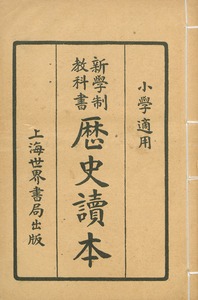 小學適用
新學制
教科書
歷史讀本
上海世界書局出版